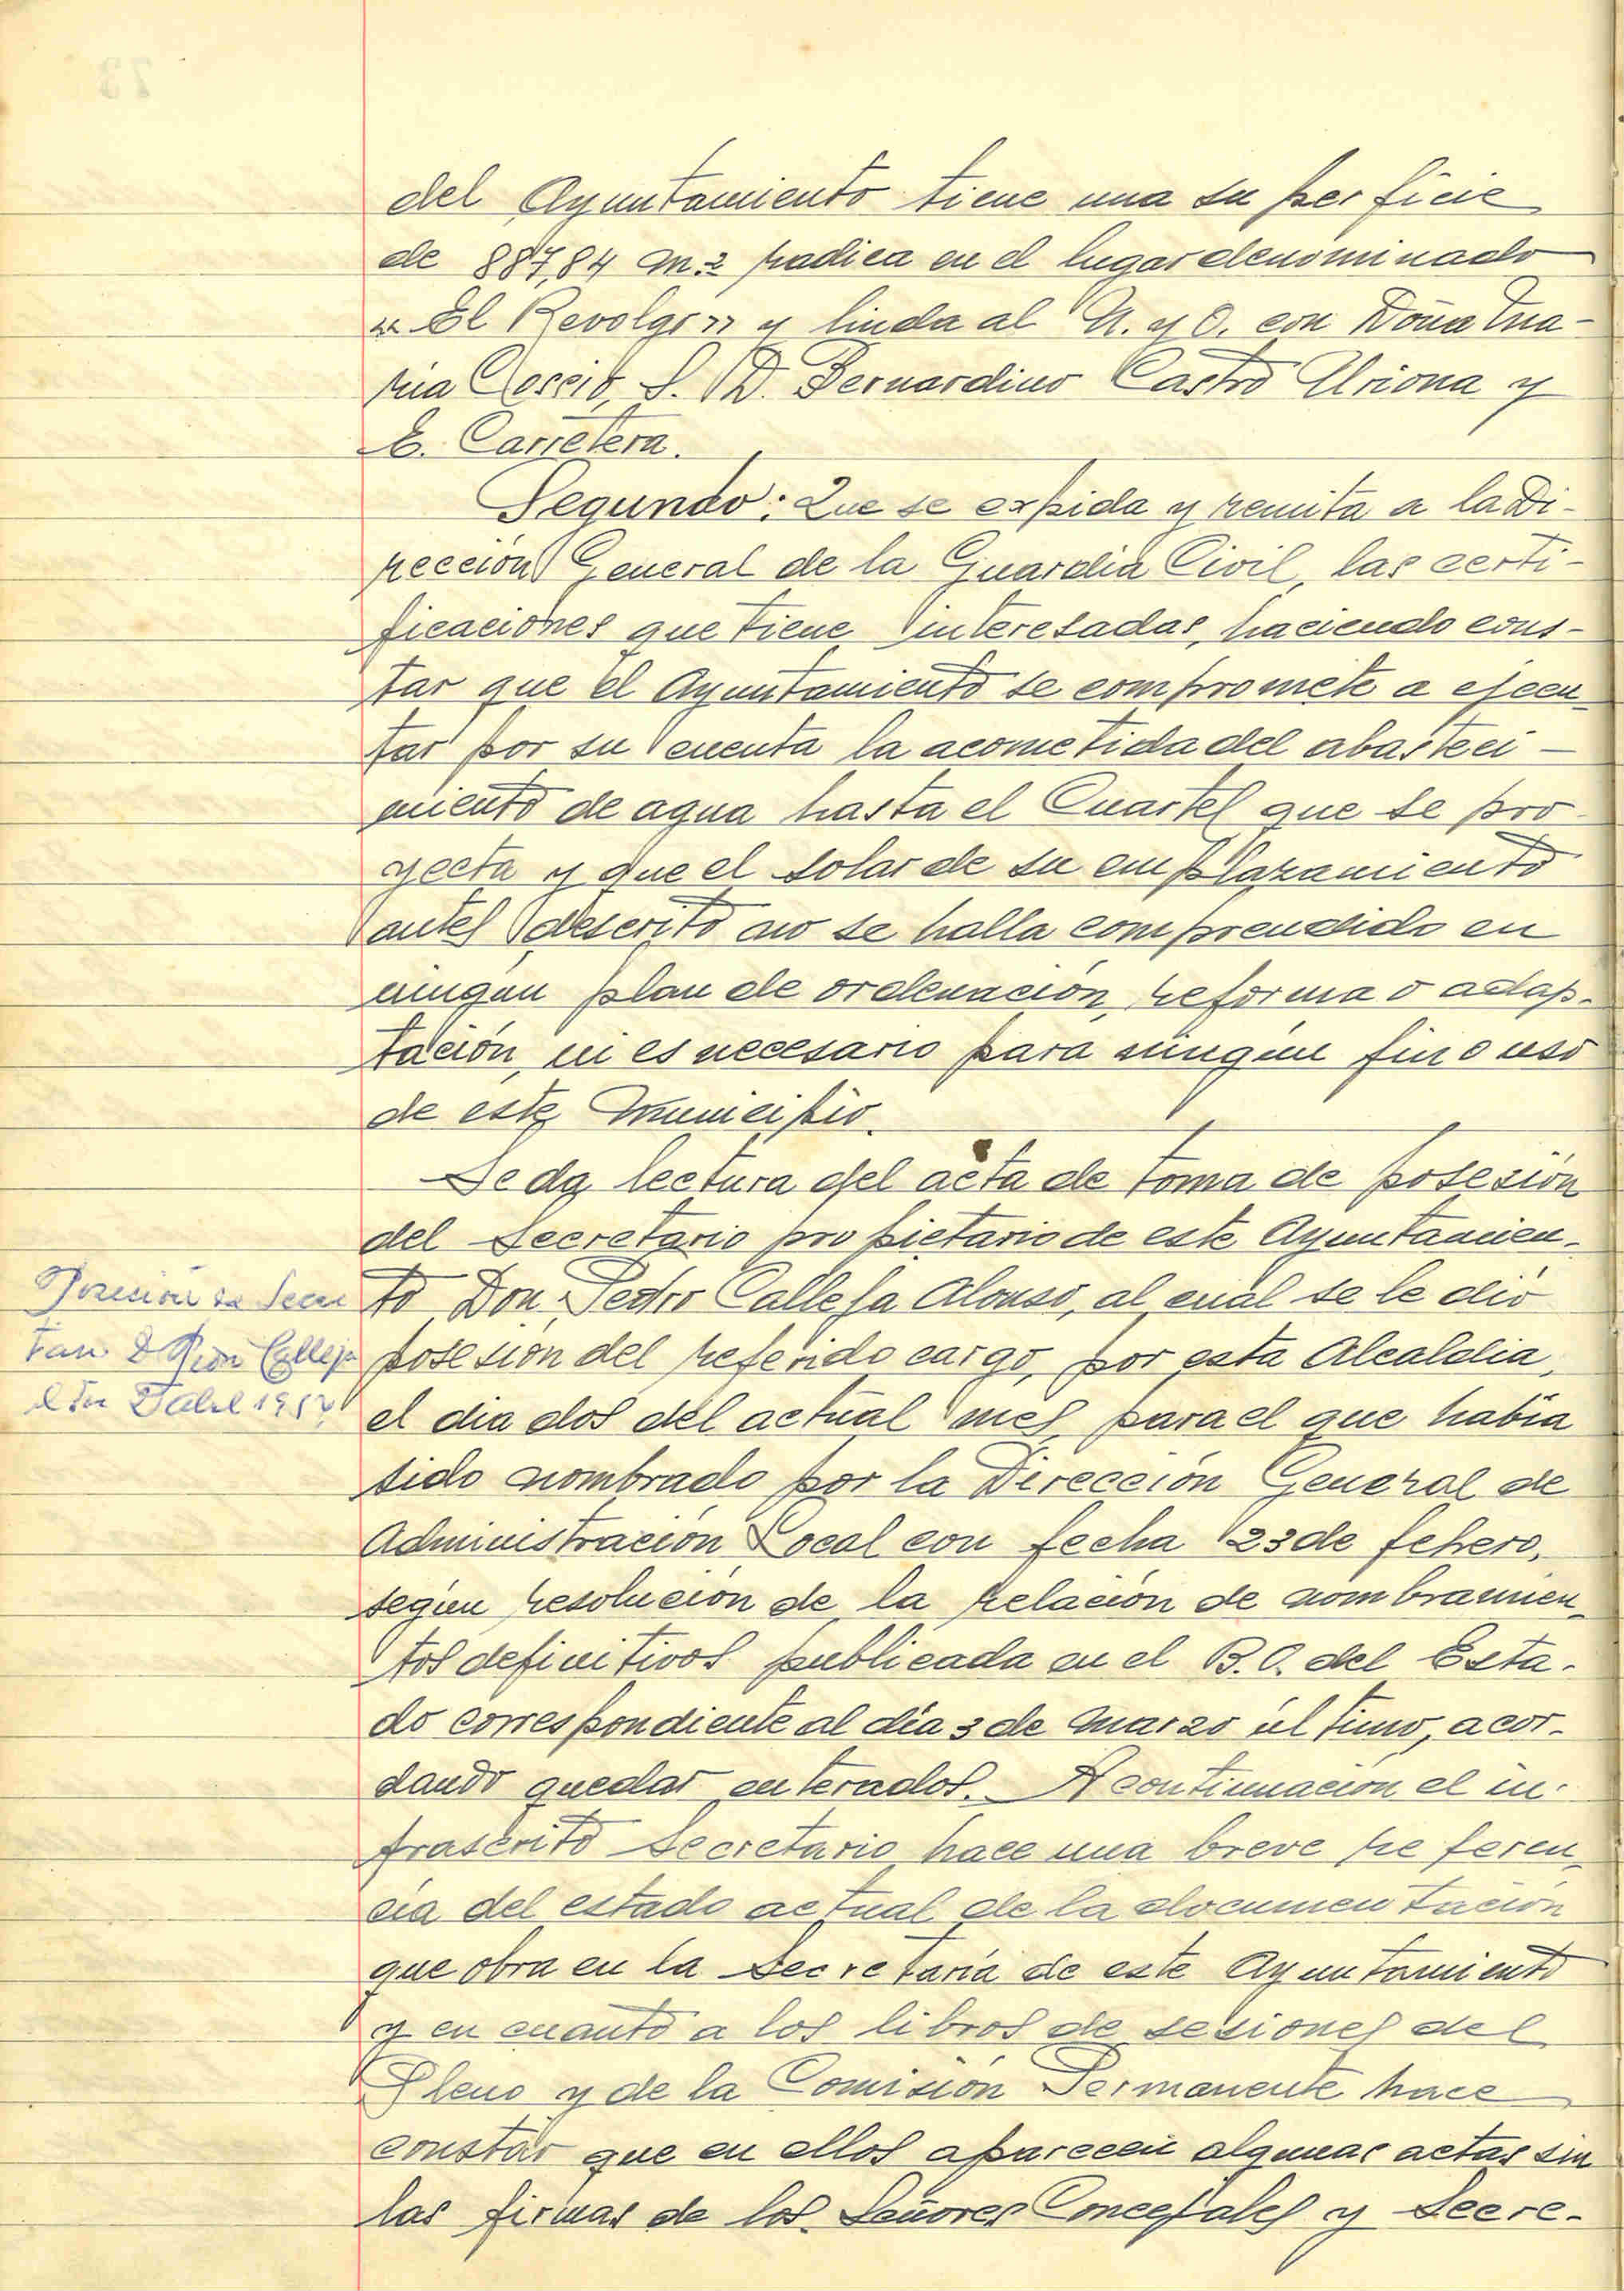 del Ayuntamiento tiene una superficie
de 887,84 m.2 radica en el lugar denominado
"El Revolgo" y linda al N. y O. con Doña Ma-
ria Cossio, S. D. Bernardino Castro Uriona y
E. Carretera.
Segundo: Que se expida y remita a la Di-
rección General de la Guardia Civil, las certi-
ficaciones que tiene interesadas, haciendo cons-
tar que el Ayuntamiento se compromete a ejecu-
tar por su cuenta la acometida del abasteci-
miento de agua hasta el Cuartel que se pro-
yecta y que el solar de su emplazamiento
antes descrito no se halla comprendido en
ningún plan de ordenación, reforma o adap-
tación, ni es necesario para ningún fin o uso
de este Municipio.
Se da lectura del acta de toma de posesión
del Secretario propietario de este Ayuntamien-
to Don Pedro Calleja Alonso, al cual se le dió
posesión del referido cargo, por esta Alcaldia,
el dia dos del actual mes, para el que había
sido nombrado por la Dirección General de
Administración Local con fecha 23 de febrero,
según resolución de la relación de nombramien-
tos definitivos publicada en el B.O. del Esta-
do correspondiente al día 3 de Marzo último, acor-
dando quedar enterados. A continuación el in-
frascrito Secretario hace una breve referen-
cia del estado actual de la documentación
que obra en la Secretaría de este Ayuntamiento
y en cuanto a los libros de sesiones del
Pleno y de la Comisión Permanente hace
constar que en ellos aparecen algunas actas sin
las firmas de los Señores Concejales y Secre-
Posesion Secre
tario D Calleja